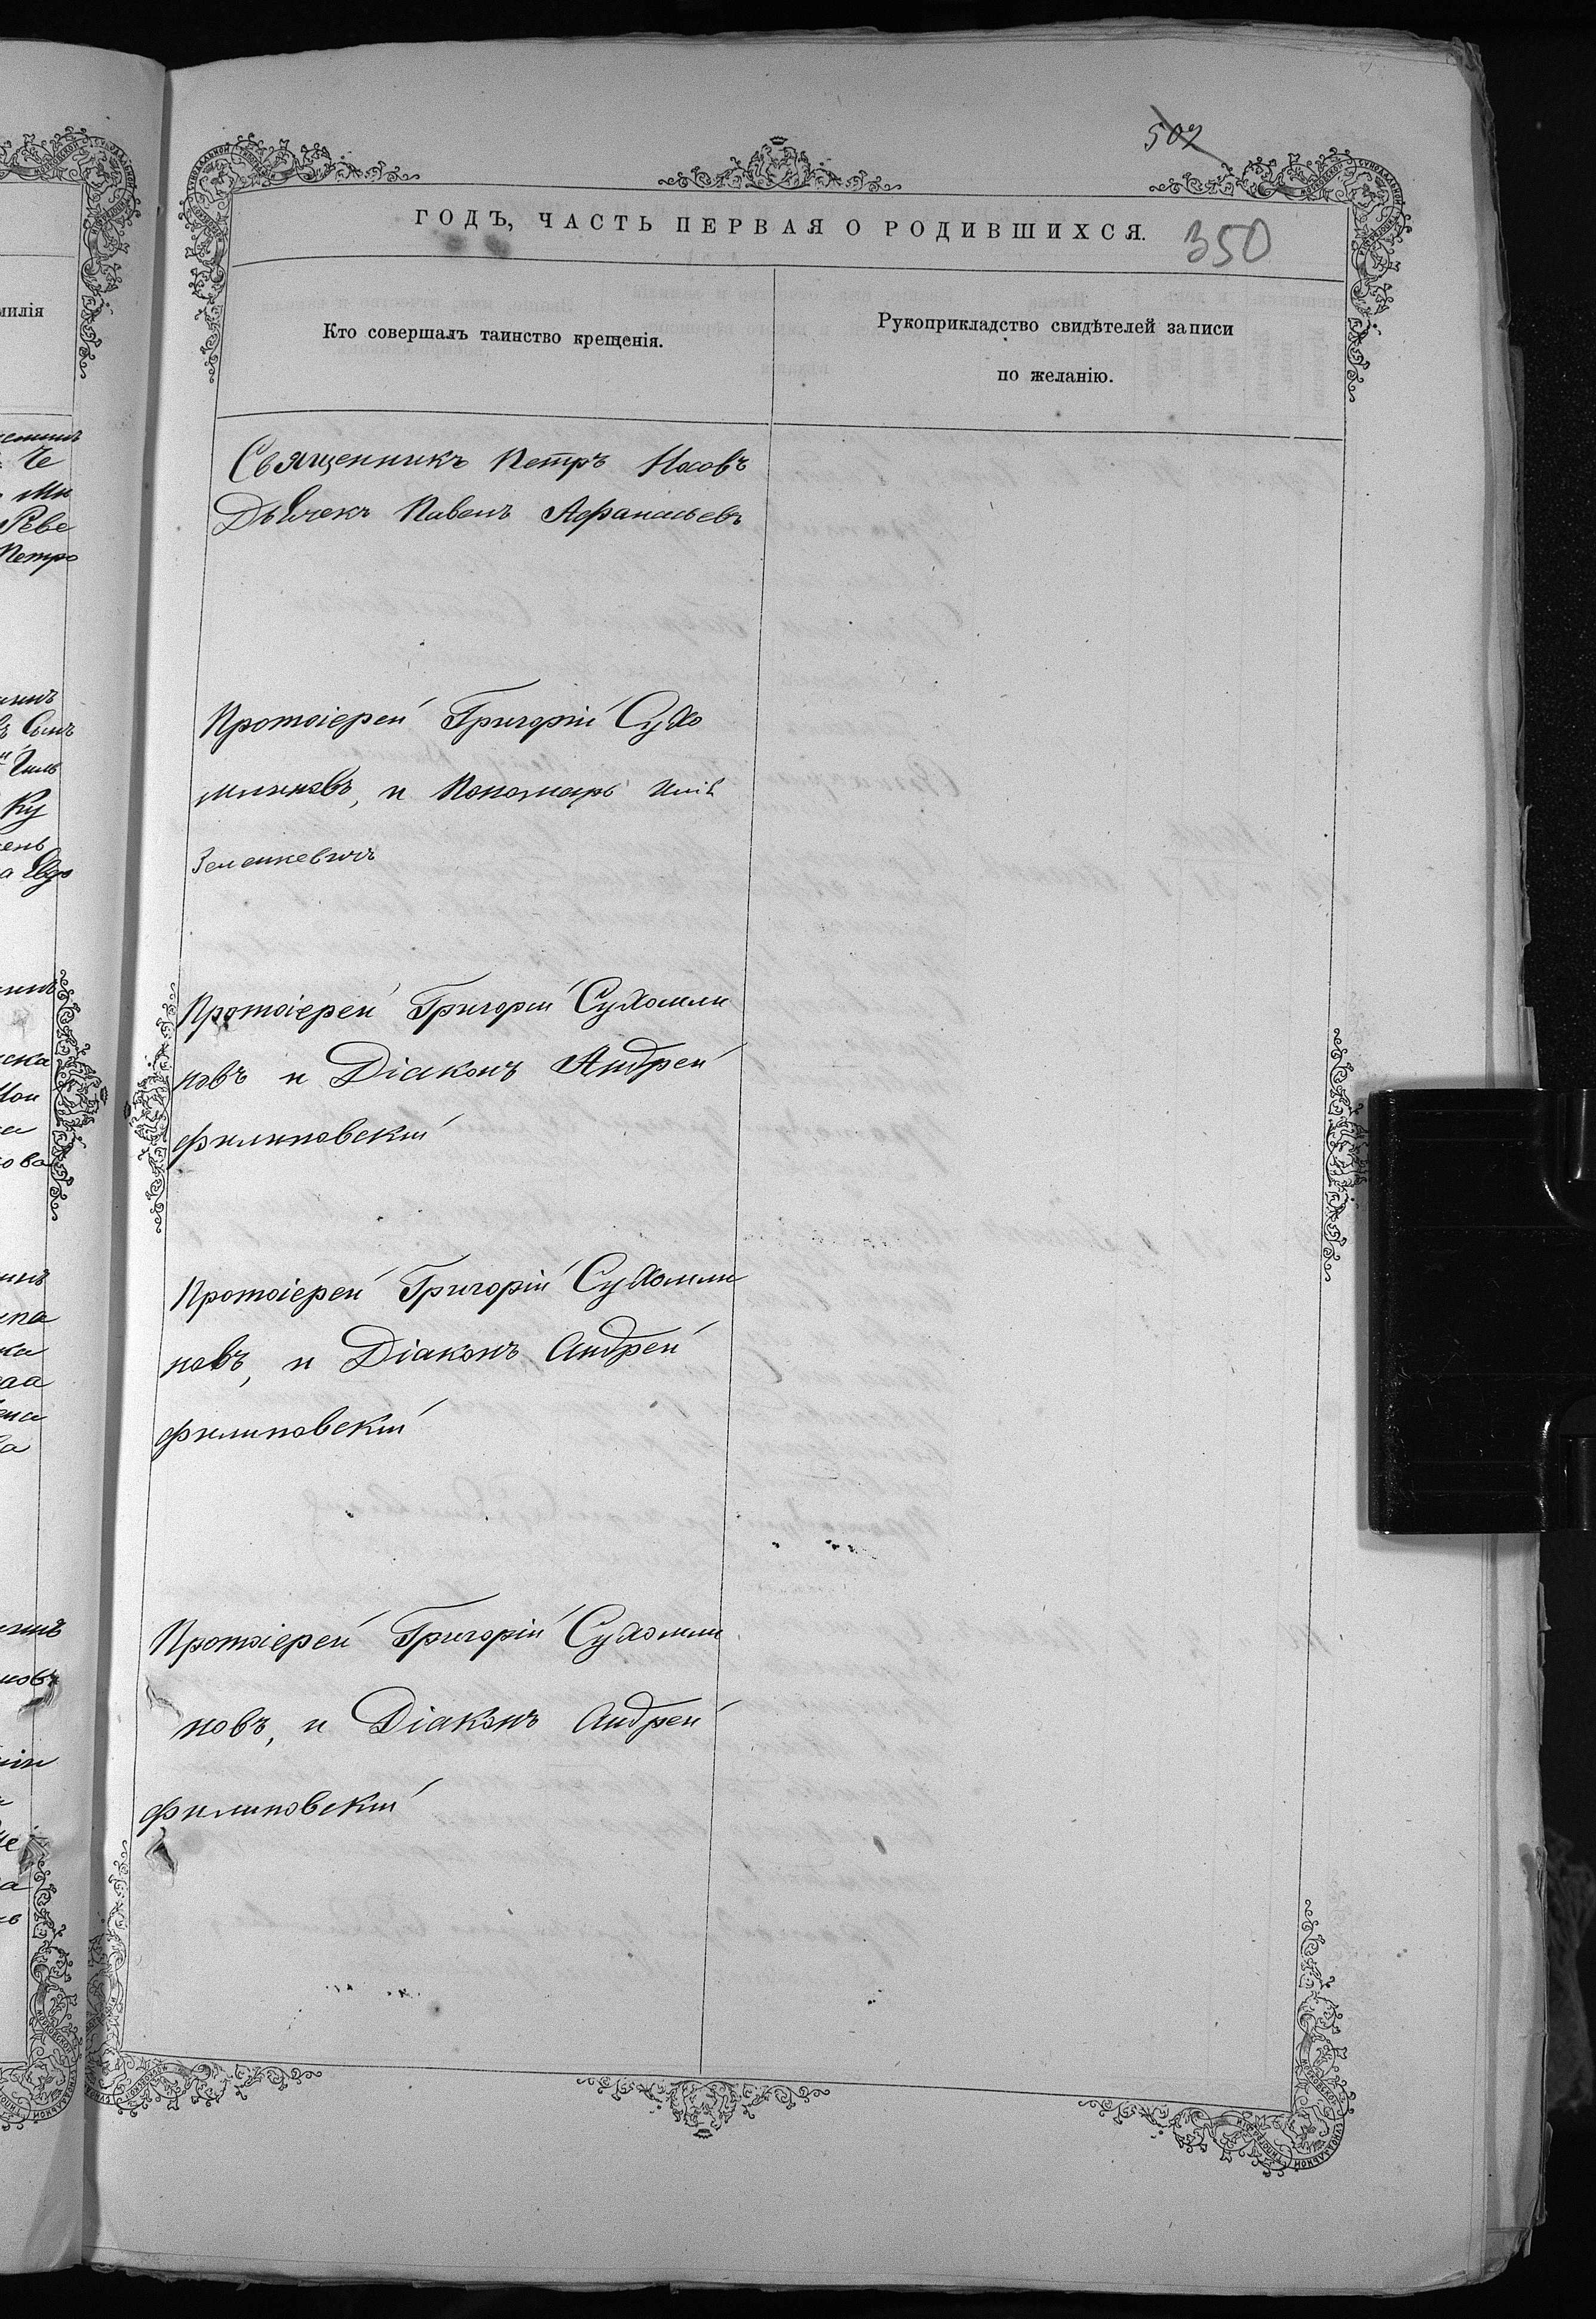 507
ГОДЪ, ЧАСТЬ ПЕРВАЯ О РОДИВШИХСЯ.
350
милія
Кто совершалъ таинство крещенія.
Рукоприкладство свидѣтелей записи
по желанію.
Священникъ Петръ Носовъ
Дьячекъ Павелъ Афанасьевъ
Протоіерей Григорій Сухо
млиновъ, и Пономарь
Зеленкевичъ
Протоіерей Григорій Сухомли
новъ и Діаконъ Андрей
Филиповскій
Протоіерей Григорій Сухомли
новъ, и Діаконъ Андрей
Филиповскій
Протоіерей Григорій Сухомли
новъ, и Діаконъ Андрей
Филиповскій